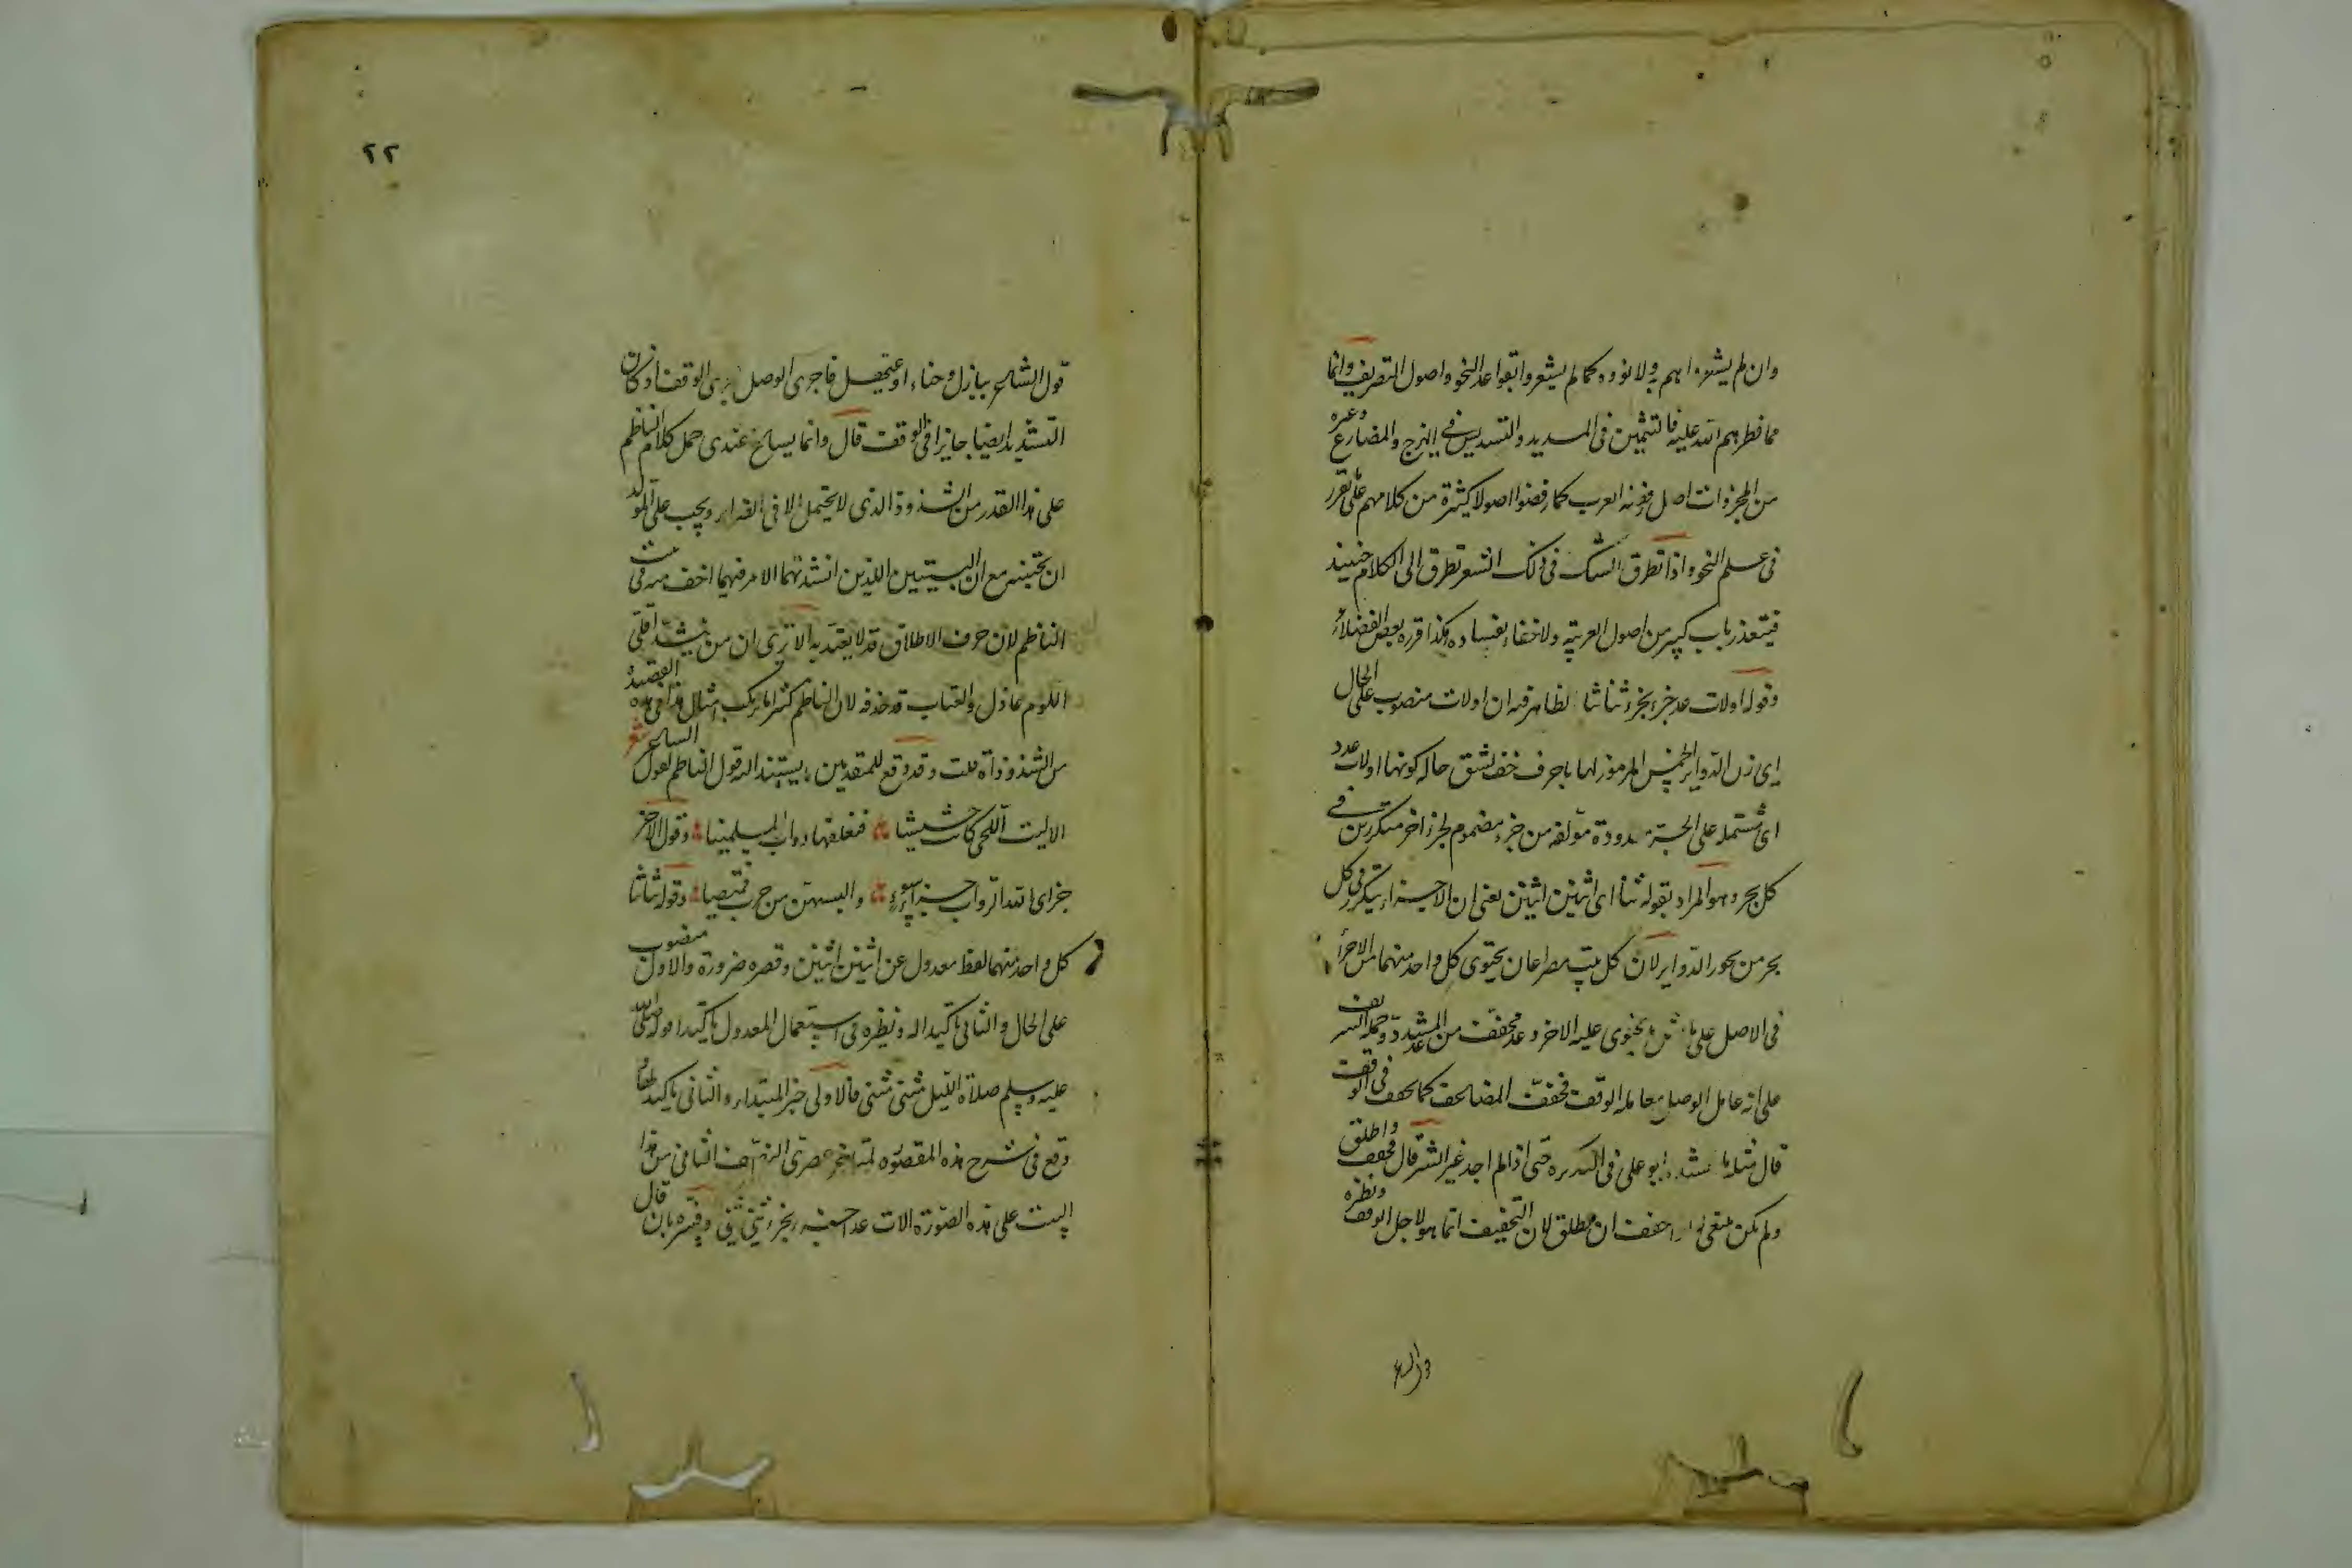 وان لم يشعروا هم به ولا نووه كما لم يشعروا بقواعد النحو واصول التصريف وانما
مما فطرهم الله عليه فالتثمين فى المديد والتسديس فى الهزج والمضارع وغيره
من المجزوات اصل رفضه العرب كما رفضوا اصولا كثيرة من كلامهم على تقرر
فى علم النحو واذا تطرق الشك فى ذلك الشعر تطرق الى الكلام حينئذ
فيتعذر باب كبير من اصول العربية ولا خفاء بفساده هكذا قرره بعض الفضلاء
وقوله اولات عد جزء لجزء ثنا ثنا الظاهر فيه ان اولات منصوب على الحال
اى زن الدواير الخمس المرموز لها باحرف خف لشق حالة كونها اولات عدد
اى مشتملة على اجزء معدودة مؤلفة من جزء مضموم لجزء اخر متكررين فى
كل بحر وهو المراد بقوله ثنا اى اثنين اثنين يعنى ان الاجزاء يتكرر فى كل
بحر من بحور الدواير لان كل بيت مصراعان يحتوى كل واحد منهما من الاجزأ
فى الاصل على مثل ما يحتوى عليه الاخر وعد مخفف من المشدد وحمله الشريف
على انه عامل الوصل معاملة الوقف فخفف المضاعف كما يخفف فى الوقف
قال مثله ما انشده ابو على فى التذكره حتى اذا لم اجد غير الشر قال فخفف واطلق
ولم يكن ينبغى اذا خفف ان يطلق لان التخفيف انما هو لاجل الوقف ونظيره
٢٢
قول الشاعر ببازل وجناء او عيهل فاجرى الوصل مجرى الوقف اذ كان
التشديد ايضا جايزا فى الوقف قال وانما يساغ عندى حمل كلام الناظم
على هذا القدر من الشذوذ الذى لا يحتمل الا فى القدر ويجب على المولد
ان يجتنبه مع ان البيتين اللذين انشدتهما الامر فيهما اخف منه فى بيت
الناظم لان حرف الاطلاق قد لا يعتد به الا ترى ان من ينشد اقلى
اللوم عاذل والعتاب قد حذفه لان الناظم كثيرا ما يركب امثال هذا فى هذه القصيدة
من الشذوذات قلت وقد وقع للمتقدمين ما يستند اليه قول الناظم كقول الشاعر شعر
الا ليت اللحى كانت حشيشا فنعلفها دواب المسلمينا وقول الاخر
جزى الله الدواب جزاء سوء والبسهن من جرب قميصا وقوله ثنا ثنا
كل واحد منهما لفظ معدول عن اثنين اثنين وقصره ضرورة والاول منصوب
على الحال والثانى تاكيدا له ونظيره فى استعمال المعدول تاكيدا قوله صلى الله
عليه وسلم صلاة الليل مثنى مثنى فالاولى خبر المبتداء والثانى تاكيد له
وقع فى شرح هذه المقصورة لمتاخر عصرى النصف الثانى من هذا
البيت على هذه الصورة الات عد جزء لجزء ثنى ثنى وفسره بان قال